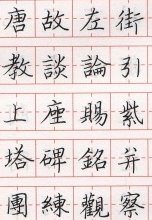 唐故左街
教談論引
上座賜紫
塔碑銘并
團練觀察